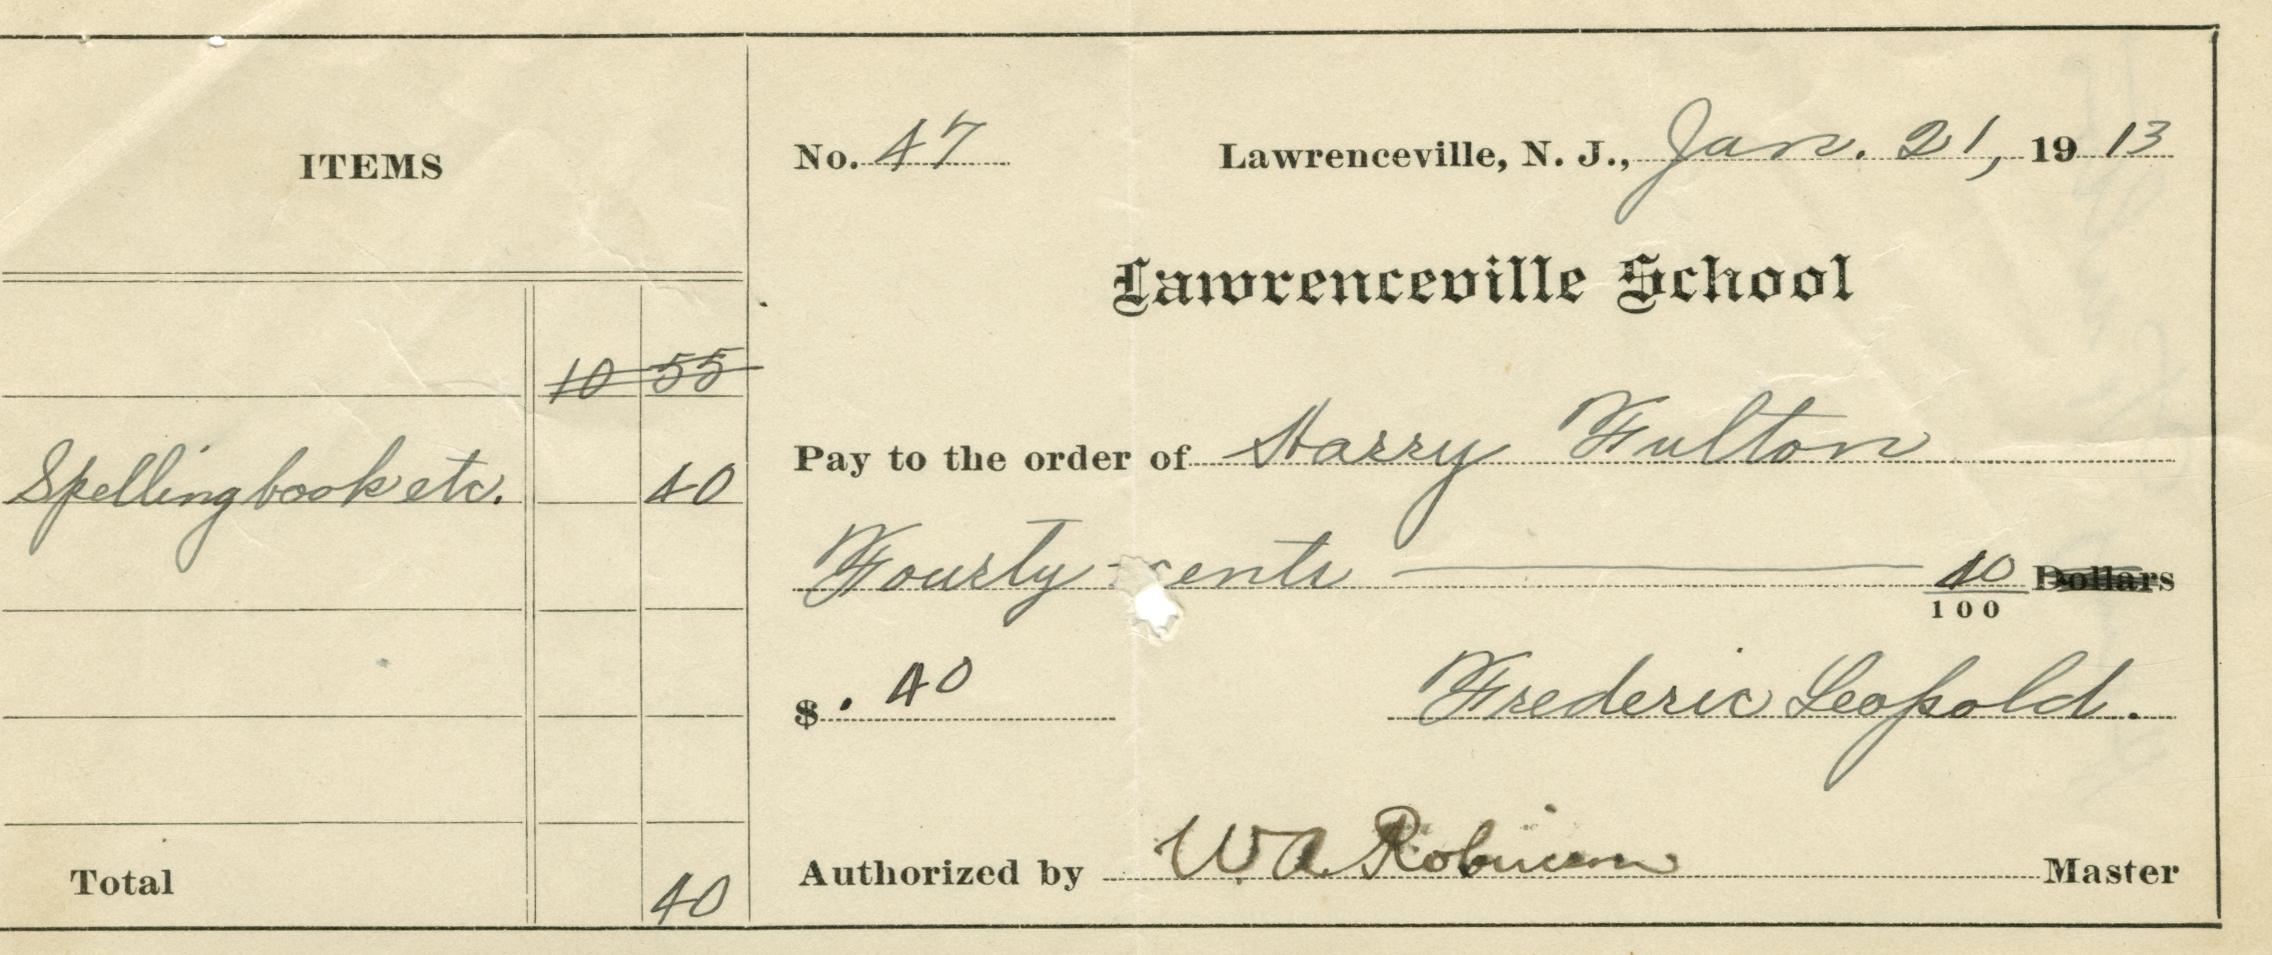 ITEMS
10 55
Spelling book etc. 40
Total 40
No. 47 Lawrenceville, N. J., Jan. 21, 1913
Lawrenceville School
Pay to the order of Harry Fulton
Fourty cents 40/100 Dollars
$ .40 Frederic Leopold.
Authorized by W. A. Robinson Master